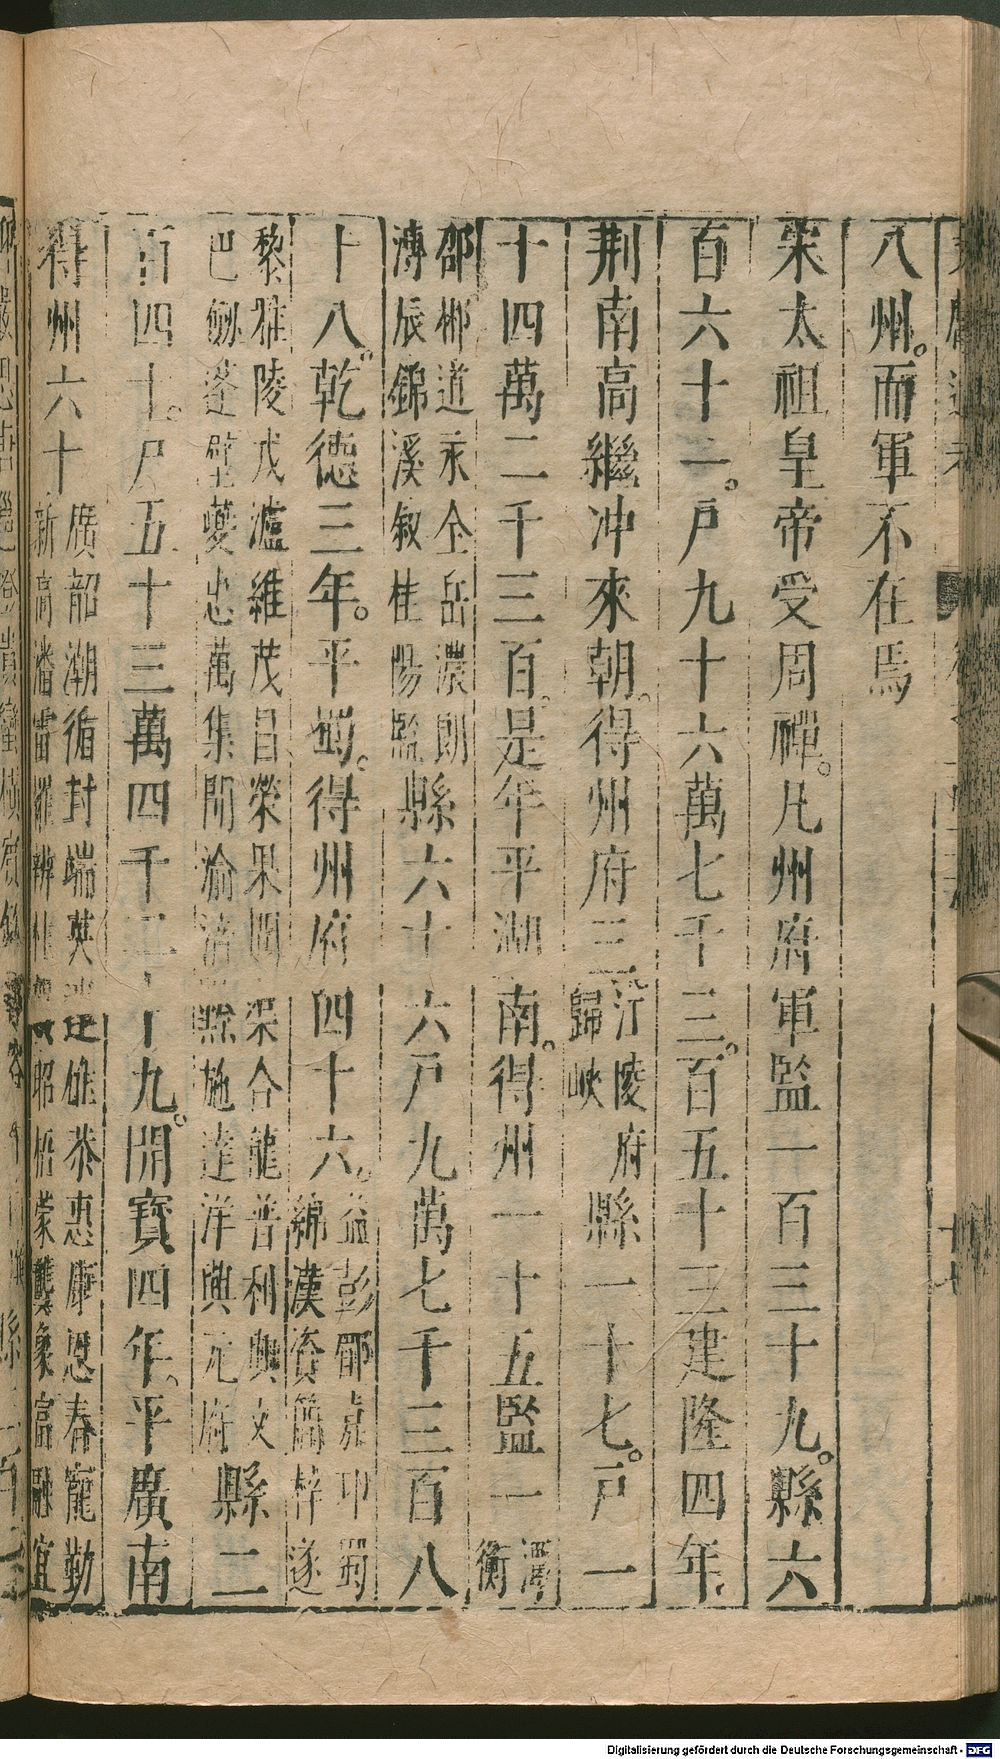 八州。而軍不在焉
宋太祖皇帝受周禪。凡州府軍監一百三十九。縣六
百六十一。戸九十六萬七千三。百五十三建隆四年
荆南高繼冲來朝。得州府三江陵府歸峽縣一十七。戸一
十四萬二千三百。是年平湖南。得州一十五監一潭衡
邵郴道永全岳澧朗溥辰錦溪敘桂陽監縣六十六戸九萬七千三百八
十八。乾德三年。平蜀。得州府四十六。益彭郿嘉卭蜀綿漢資簡梓遂
黎雅陵戎瀘維茂昌榮果閬渠合龍普利興文巴劒蓬壁夔忠萬集開渝涪黔施達洋興元府縣二
百四十。戸五十三萬四千三十九。開寶四年。平廣南
得州六十廣韶潮循封端英連雄恭惠康恩春瀧勤新高潘雷羅辨桂賀昭梧蒙龔象富融宜
Digitalisierung gefördert durch die Deutsche Forschungsgemeinschaft - DFG